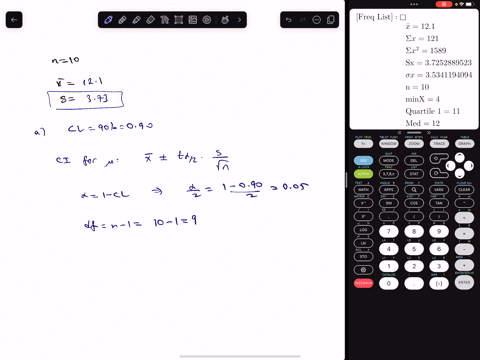 n=10
x̄ = 12.1
S = 3.73
a) CL = 90% = 0.90
CI for μ: x̄ ± tα/2 · s/√n
α = 1-CL ⇒ α/2 = (1-0.90)/2 = 0.05
df = n-1 = 10-1 = 9
[Freq List] : □
x̄ = 12.1
Σx = 121
Σx² = 1589
Sx = 3.7252889523
σx = 3.5341194094
n = 10
minX = 4
Quartile 1 = 11
Med = 12
Y= WINDOW ZOOM TRACE GRAPH
2ND MODE DEL
ALPHA X,T,θ,n STAT
MATH APPS PRGM VARS CLEAR
SIN COS TAN
x² , ( ) ÷
LOG 7 8 9 ×
LN 4 5 6 -
STO 1 2 3 +
0 . (-) ENTER